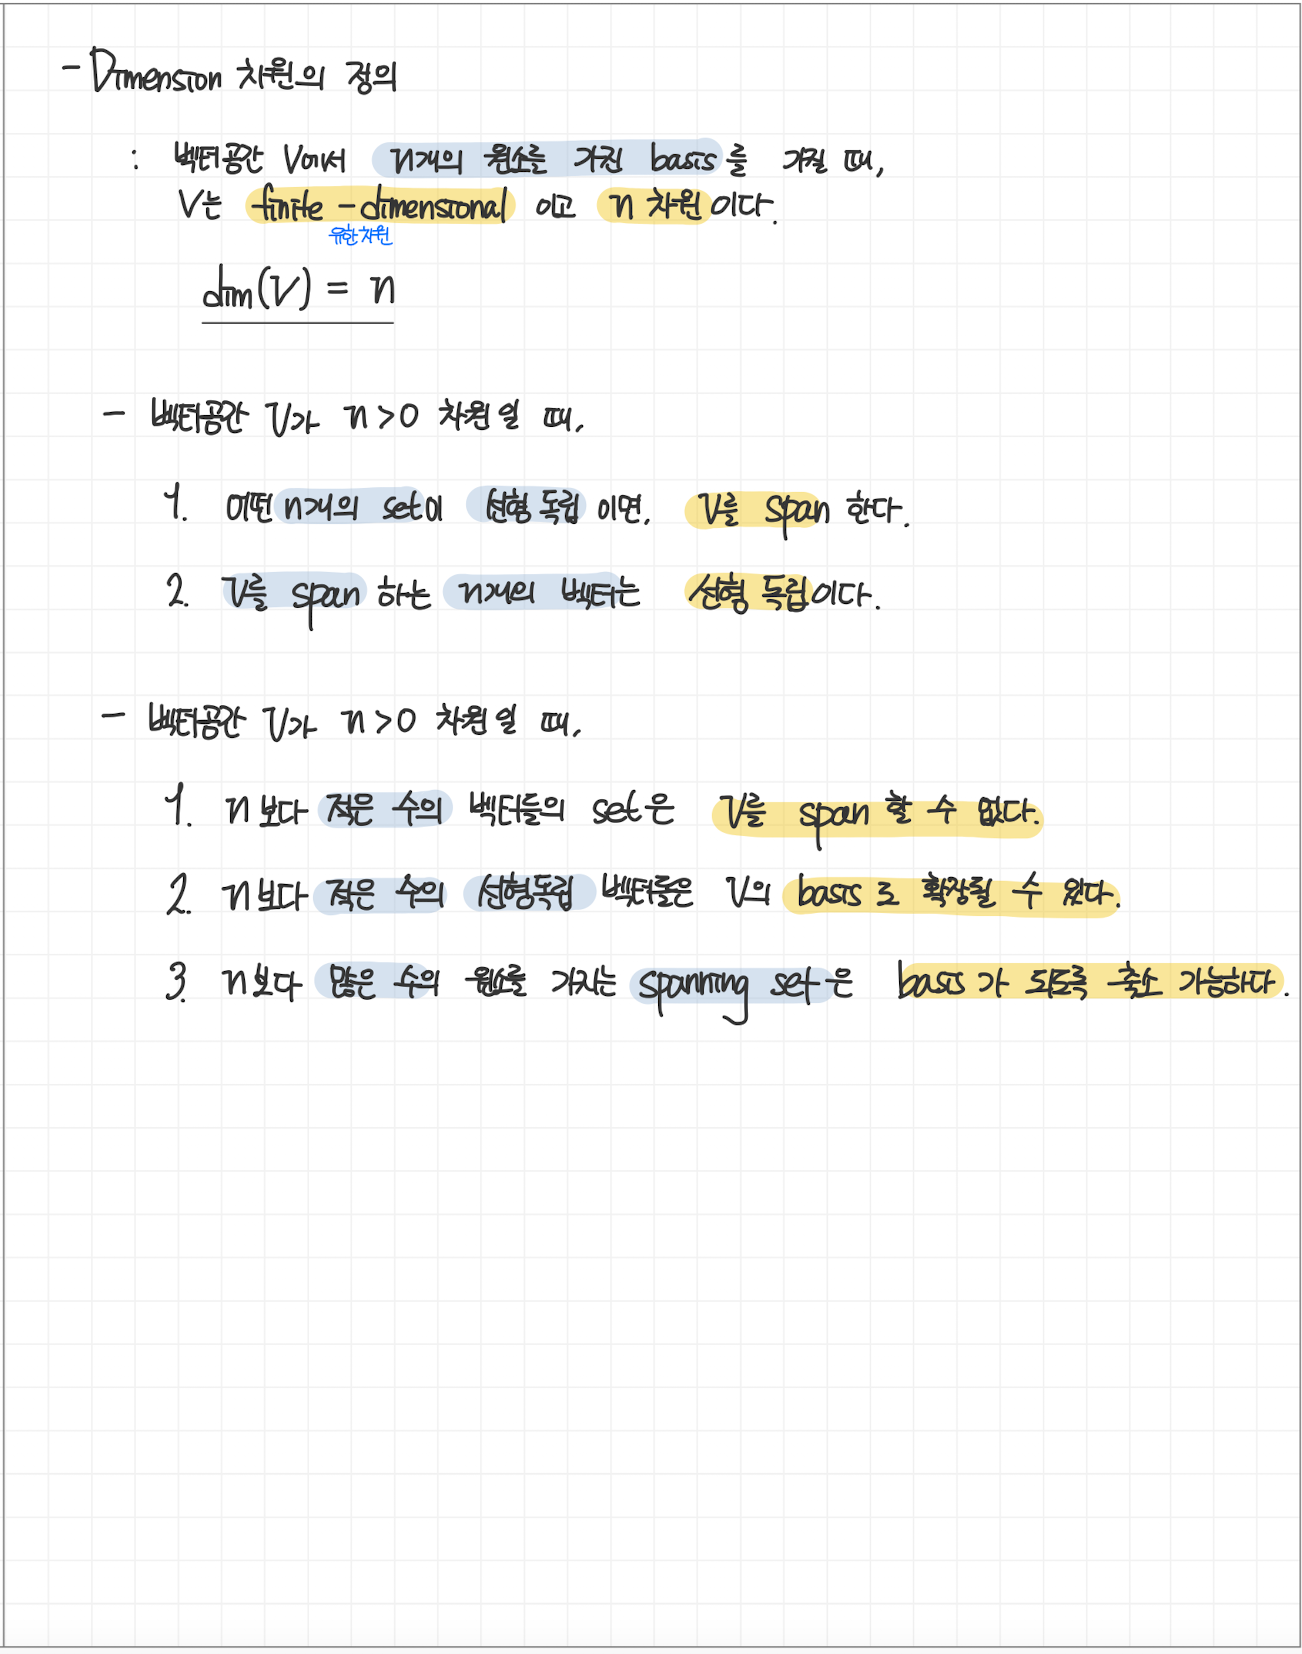 - Dimension 차원의 정의
: 벡터공간 V에서 n개의 원소를 가진 basis를 가질 때,
V는 finite-dimensional 이고 n 차원이다.
유한차원
dim(V) = n
- 벡터공간 V가 n>0 차원일 때,
1. 어떤 n개의 set이 선형 독립 이면, V를 span 한다.
2. V를 span 하는 n개의 벡터는 선형 독립이다.
- 벡터공간 V가 n>0 차원일 때,
1. n보다 적은 수의 벡터들의 set은 V를 span 할 수 없다.
2. n보다 적은 수의 선형독립 벡터들은 V의 basis로 확장될 수 있다.
3. n보다 많은 수의 원소를 가지는 spanning set은 basis가 되도록 축소 가능하다.